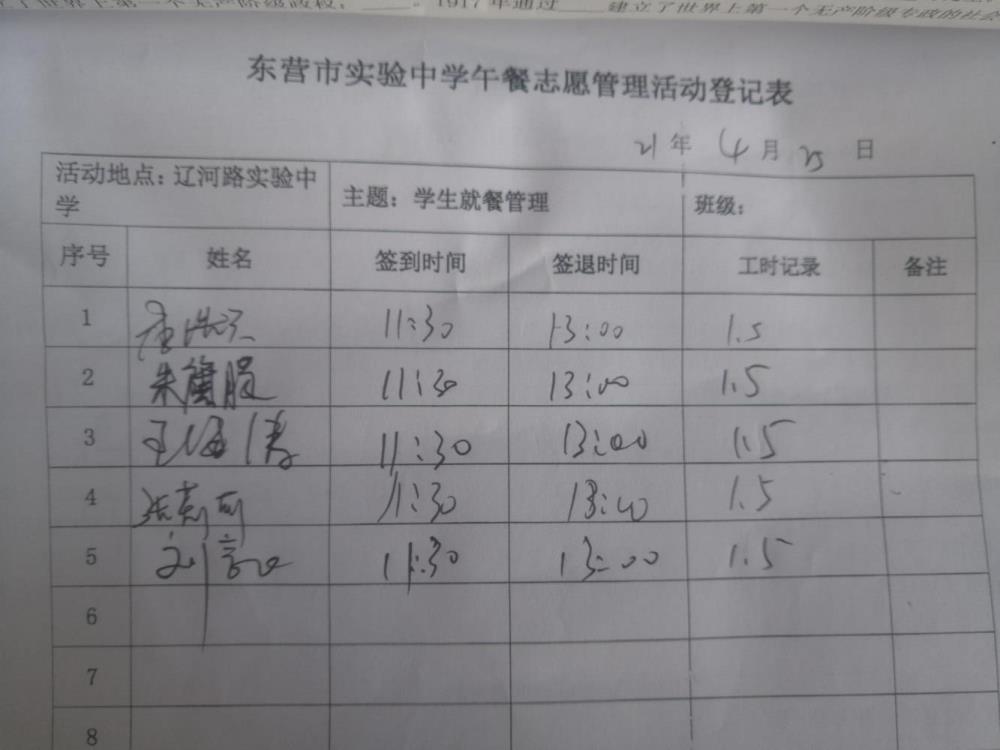 建立了世界上第一个无产阶级专政的社会
东营市实验中学午餐志愿管理活动登记表
21年 4月 25日
活动地点：辽河路实验中学 主题：学生就餐管理 班级：
序号 姓名 签到时间 签退时间 工时记录 备注
1 11:30 13:00 1.5
2 朱 11:30 13:00 1.5
3 王海涛 11:30 13:00 1.5
4 张 11:30 13:00 1.5
5 刘 11:30 13:00 1.5
6
7
8